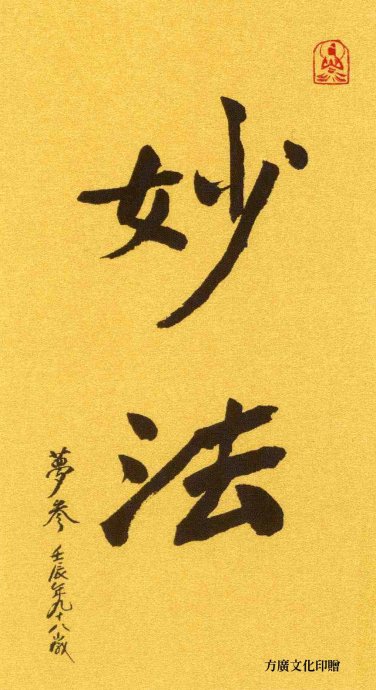 妙法
夢參 壬辰年九十八歲
方廣文化印贈